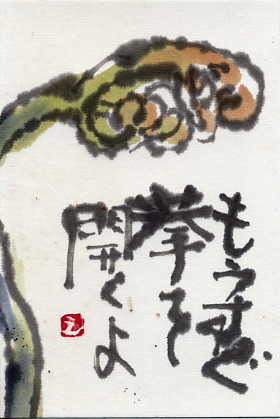 もうすぐ
拳を
開くよ
え